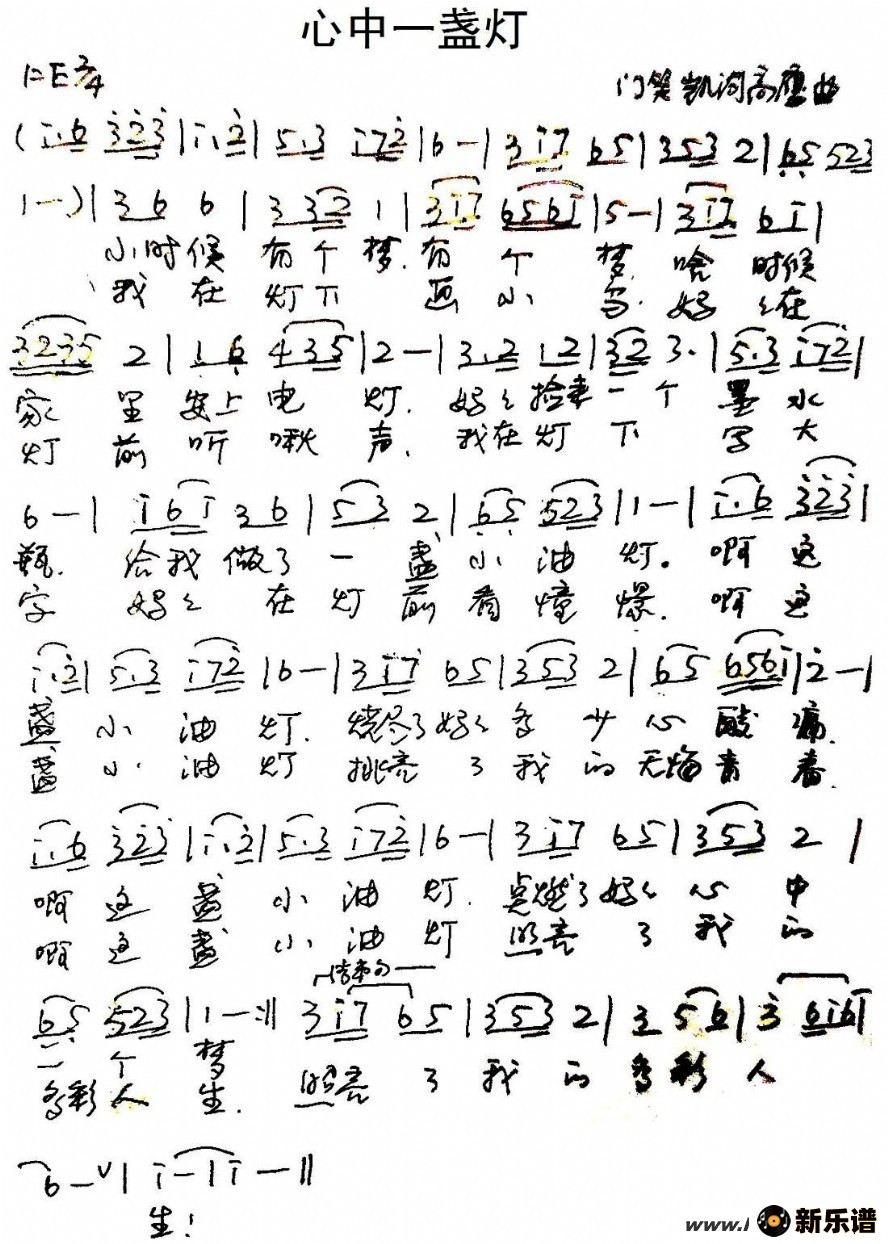 心中一盏灯
1=E 2/4
门笑凯词 高鹰曲
(i·6 323|i·2|5·3 i72|6-|3i7 65|353 2|65 523
1-)|36 6|332 1|3i7 656i|5-|3i7 6i|
小时候 有个梦.有个梦.啥时候
我在灯下画小鸟.妈々在
3235 2|16 435|2-|3·2 12|32 3·|5·3 i72|
家里安上电灯.妈々捡来一个墨水
灯前听啾声.我在灯下写大
6-|i6i 36|53 2|65 523|1-|i·6 323|
瓶.给我做了一盏小油灯。啊这
字 妈々在灯前看憧憬.啊这
i·2|5·3 i72|6-|3i7 65|353 2|65 656i|2-|
盏小油灯.烧尽了妈々多少心酸痛.
盏小油灯 挑亮了我的无悔青春.
i·6 323|i·2|5·3 i72|6-|3i7 65|353 2|
啊这盏小油灯.点燃了妈々心中
啊这盏小油灯 照亮了我的
结束句
65 523|1-:||3i7 65|353 2|3 56|3 6i6i|
一个梦
多彩人生.照亮了我的多彩人
6-∨|i-|i-||
生!
www.
新乐谱